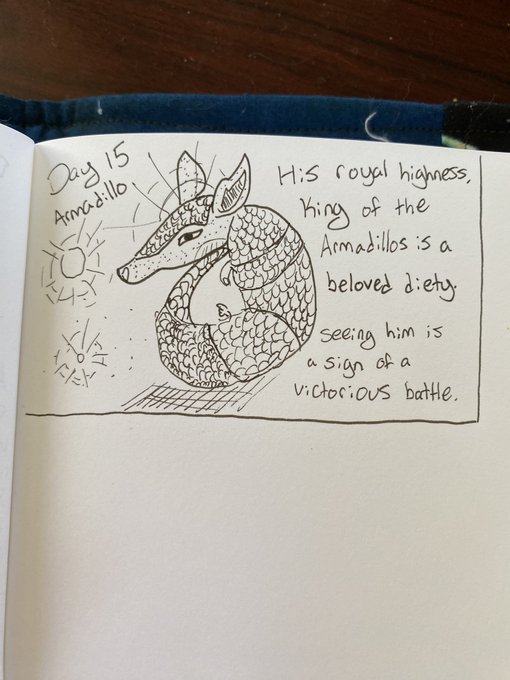 Day 15
Armadillo
His royal highness,
King of the
Armadillos is a
beloved diety.
seeing him is
a sign of a
victorious battle.